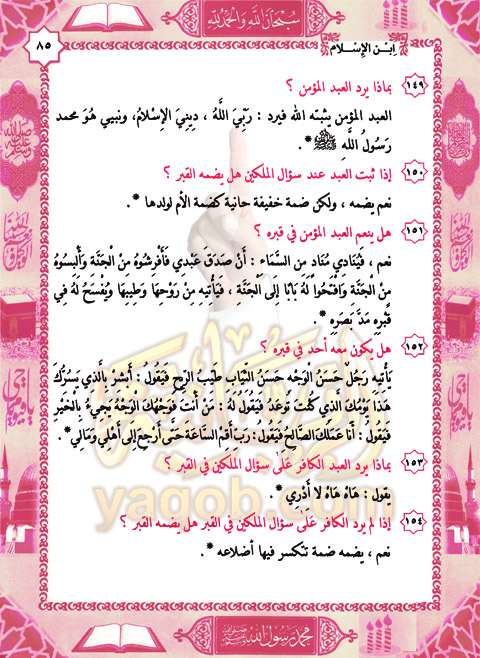 سُبْحَانَ اللَّهِ وَالْحَمْدُ لِلَّهِ
٨٥
اِبْنُ الإِسْلَام
١٤٩ بماذا يرد العبد المؤمن ؟
العبد المؤمن يثبته الله فيرد : رَبِّيَ اللَّهُ ، دِينِيَ الإِسْلَامُ، ونبيي هُوَ محمد
رَسُولُ اللَّهِ ﷺ * .
١٥٠ إذا ثبت العبد عند سؤال الملكين هل يضمه القبر ؟
نعم يضمه ، ولكن ضمة خفيفة حانية كضمة الأم لولدها * .
١٥١ هل ينعم العبد المؤمن في قبره ؟
نعم ، فَيُنَادِي مُنَادٍ مِنَ السَّمَاءِ : أَنْ صَدَقَ عَبْدِي فَأَفْرِشُوهُ مِنَ الْجَنَّةِ وَأَلْبِسُوهُ
مِنَ الْجَنَّةِ وَافْتَحُوا لَهُ بَابًا إِلَى الْجَنَّةِ ، فَيَأْتِيهِ مِنْ رَوْحِهَا وَطِيبِهَا وَيُفْسَحُ لَهُ فِي
قَبْرِهِ مَدَّ بَصَرِهِ * .
١٥٢ هل يكون معه أحد في قبره ؟
يَأْتِيهِ رَجُلٌ حَسَنُ الْوَجْهِ حَسَنُ الثِّيَابِ طَيِّبُ الرِّيحِ فَيَقُولُ : أَبْشِرْ بِالَّذِي يَسُرُّكَ
هَذَا يَوْمُكَ الَّذِي كُنْتَ تُوعَدُ فَيَقُولُ لَهُ : مَنْ أَنْتَ فَوَجْهُكَ الْوَجْهُ يَجِيءُ بِالْخَيْرِ
فَيَقُولُ : أَنَا عَمَلُكَ الصَّالِحُ فَيَقُولُ : رَبِّ أَقِمِ السَّاعَةَ حَتَّى أَرْجِعَ إِلَى أَهْلِي وَمَالِي * .
١٥٣ بماذا يرد العبد الكافر عَلَى سؤال الملكين في القبر ؟
يقول : هَاهْ هَاهْ لَا أَدْرِي * .
١٥٤ إذا لم يرد الكافر عَلَى سؤال الملكين في القبر هل يضمه القبر ؟
نعم ، يضمه ضمة تنكسر فيها أضلاعه * .
yaqob.com
محمد رسول الله ﷺ